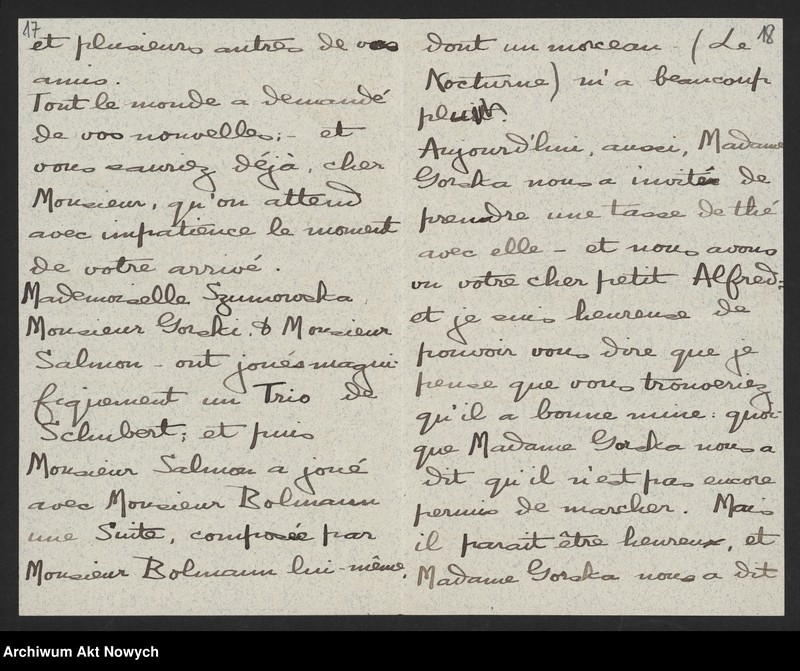 17
et plusieurs autres de vos
amis.
Tout le monde a demandé
de vos nouvelles;- et
vous sauriez déjà, cher
Monsieur, qu'on attend
avec impatience le moment
de votre arrivé.
Mademoiselle Szumowska,
Monsieur Gorski & Monsieur
Salmon - ont joués magni-
fiquement un Trio de
Schubert; et puis
Monsieur Salmon a joué
avec Monsieur Bolmann
une Suite, composée par
Monsieur Bolmann lui-même,
18
dont un morceau - (Le
Nocturne) m'a beaucoup
plu.
Aujourd'hui, aussi, Madame
Gorska nous a invité de
prendre une tasse de thé
avec elle - et nous avons
vu votre cher petit Alfred=
et je suis heureuse de
pouvoir vous dire que je
pense que vous trouveriez
qu'il a bonne mine: quoi-
que Madame Gorska nous a
dit qu'il n'est pas encore
permis de marcher. Mais
il parait être heureux, et
Madame Gorska nous a dit
Archiwum Akt Nowych